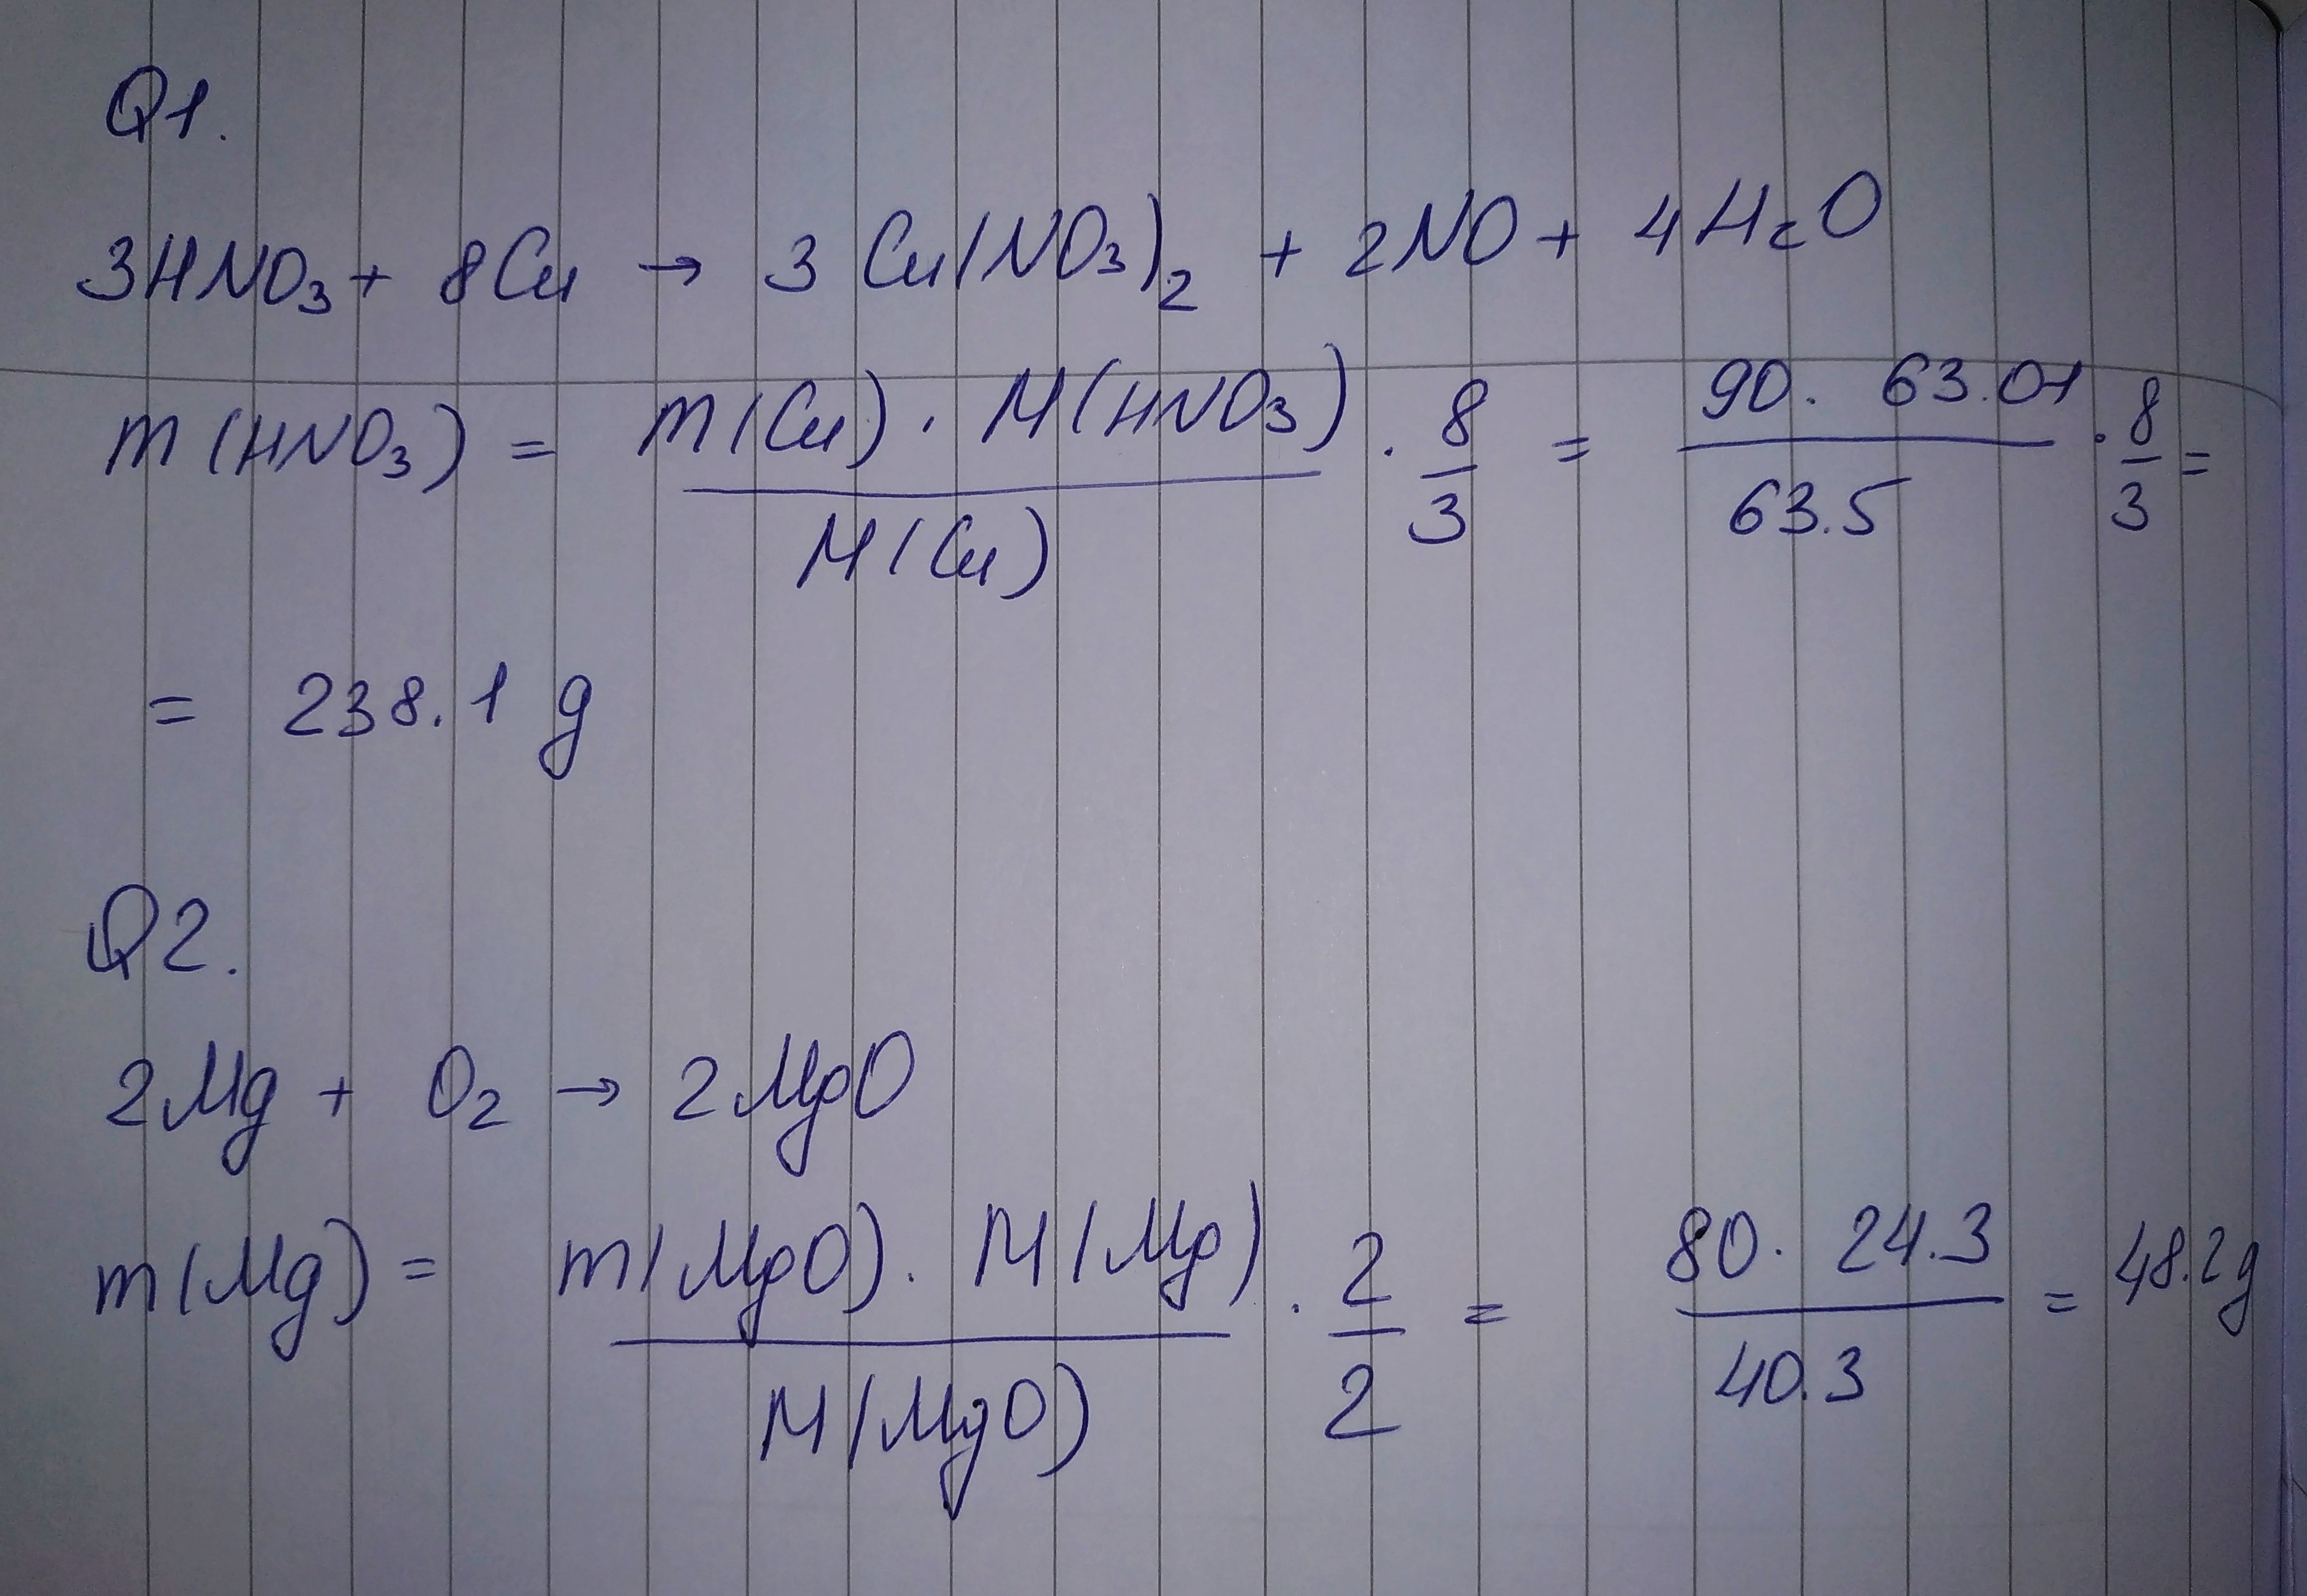 Q1.
3HNO₃ + 8Cu → 3 Cu(NO₃)₂ + 2NO + 4H₂O
m(HNO₃) = m(Cu) · M(HNO₃) / M(Cu) · 8/3 = 90 · 63.01 / 63.5 · 8/3 =
= 238.1 g
Q2.
2Mg + O₂ → 2MgO
m(Mg) = m(MgO) · M(Mg) / M(MgO) · 2/2 = 80 · 24.3 / 40.3 = 48.2g